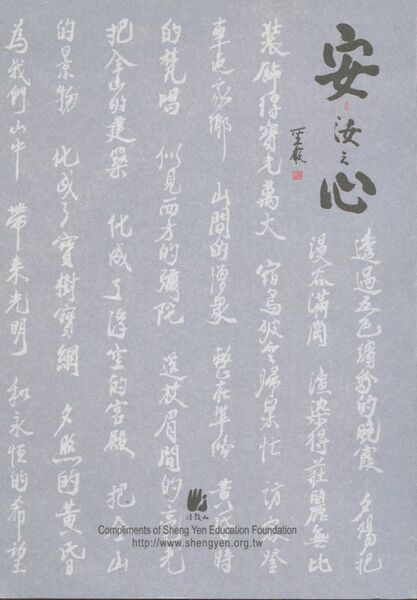 安汝之心
聖嚴
透過五色繽紛的晚霞 夕陽把
漫谷滿園 渲染得莊麗無比
裝飾得寶光萬丈 宿鳥破空歸巢忙 訪客登
車返家鄉 山間的僧眾 黃昏時
的梵唱 似見西方的彌陀 遙放眉間的毫光
把金山的建築 化成了浮空的宮殿 把金山
的景物 化成了寶樹寶網 夕照的黃昏
為我們山中 帶來光明 和永恒的希望
法鼓山
Compliments of Sheng Yen Education Foundation
http://www.shengyen.org.tw